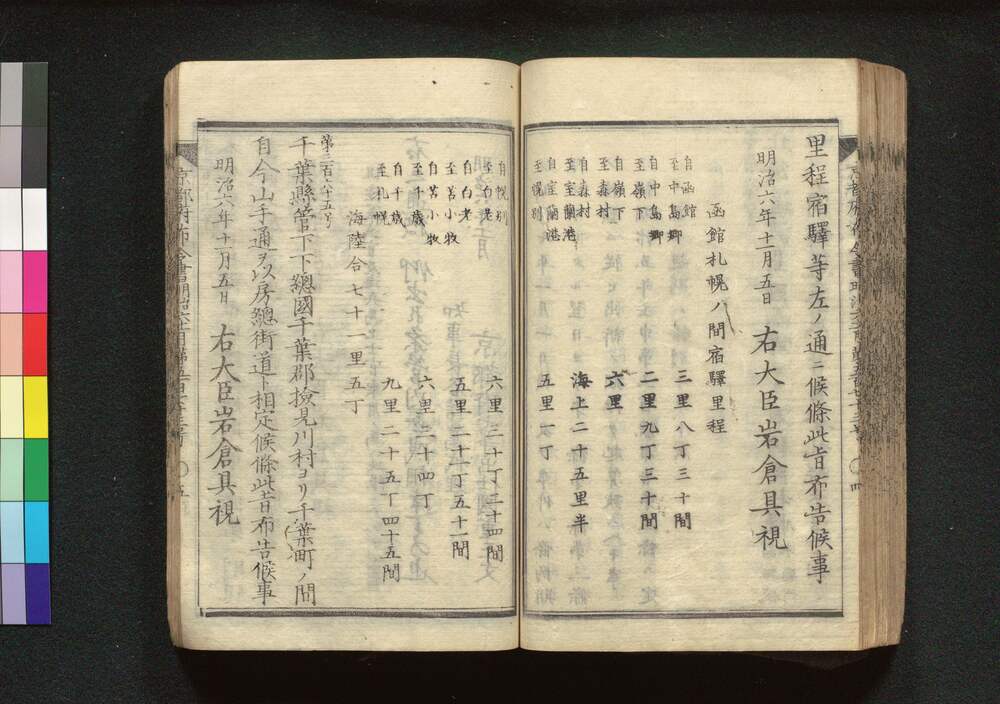 里程宿驛等左ノ通ニ候條此旨布告候事
明治六年十一月五日　右大臣岩倉具視
函館札幌ノ間宿驛里程
自函館
至中島郷　三里八丁三十間
自中島郷
至嶺下　二里九丁三十間
自嶺下
至森村　六里
自森村
至室蘭港　海上二十五里半
自室蘭港
至幌別　五里一丁
自幌別
至白老　六里三十丁三十四間
自白老
至苫小牧　五里二十一丁五十一間
自苫小牧
至千歳　六里二十四丁
自千歳
至札幌　九里二十五丁四十五間
海陸合七十一里五丁
第三百六十五号
千葉縣管下下總國千葉郡撿見川村ヨリ千葉町ノ間
自今山手通ヲ以房總街道ト相定候條此旨布告候事
明治六年十一月五日　右大臣岩倉具視